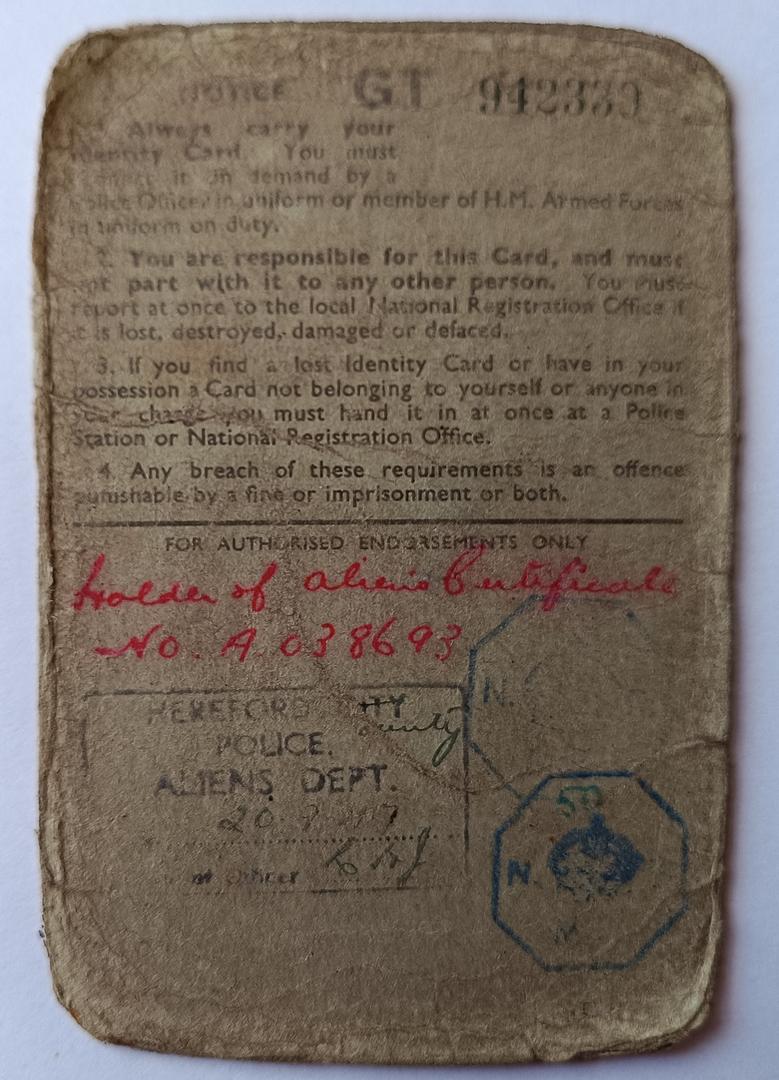 NOTICE GT 942339
1. Always carry your
Identity Card. You must
it on demand by a
Police Officer in uniform or member of H.M. Armed Forces
in uniform on duty.
2. You are responsible for this Card, and must
not part with it to any other person. You must
report at once to the local National Registration Office if
it is lost, destroyed, damaged or defaced.
3. If you find a lost Identity Card or have in your
possession a Card not belonging to yourself or anyone in
your charge you must hand it in at once at a Police
Station or National Registration Office.
4. Any breach of these requirements is an offence
punishable by a fine or imprisonment or both.
FOR AUTHORISED ENDORSEMENTS ONLY
Holder of aliens Certificate
No. A 038693
HEREFORD
County
POLICE.
ALIENS DEPT.
Officer
N.
50
N.